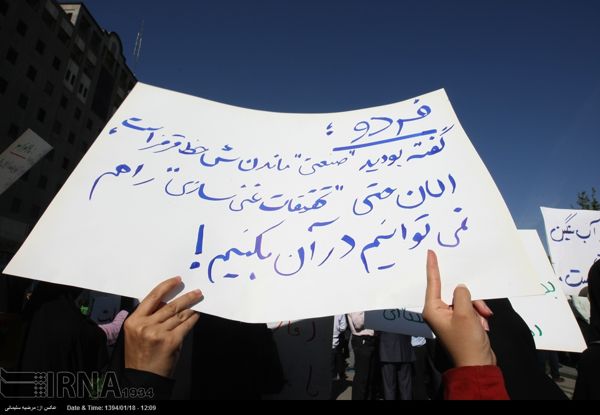 فردو :
گفته بودید "صنعتی" ماندن‌ش خط قرمز است،
الان حتی "تحقیقات غنی سازی" را هم
نمی توانیم در آن بکنیم !
آب
IRNA 1934
عکس از: مرضیه سلیمانی
Date & Time: 1394/01/18 - 12:09